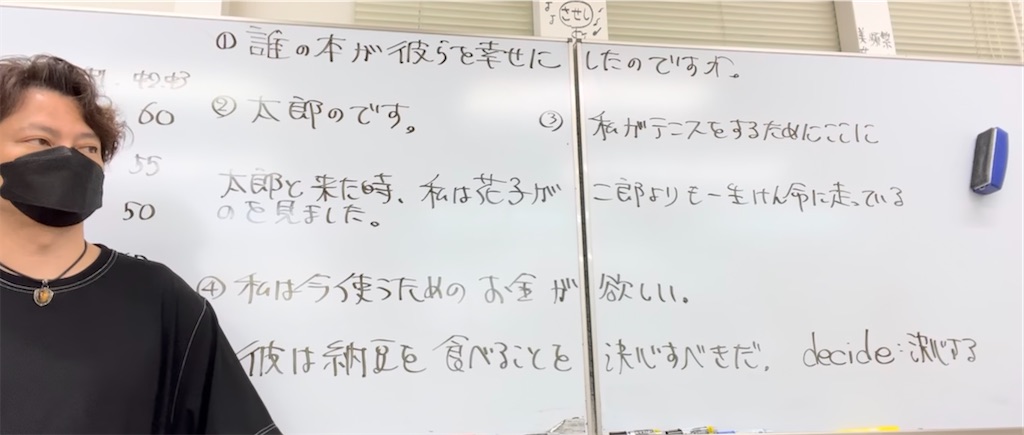 させし
① 誰の本が彼らを幸せにしたのですか。
42.43
60
② 太郎のです。
③ 私がテニスをするためにここに
55
太郎と来た時、私は花子が二郎よりも一生けん命に走っている
50
のを見ました。
④ 私は今使うためのお金が欲しい。
彼は納豆を食べることを決心すべきだ。 decide:決心する